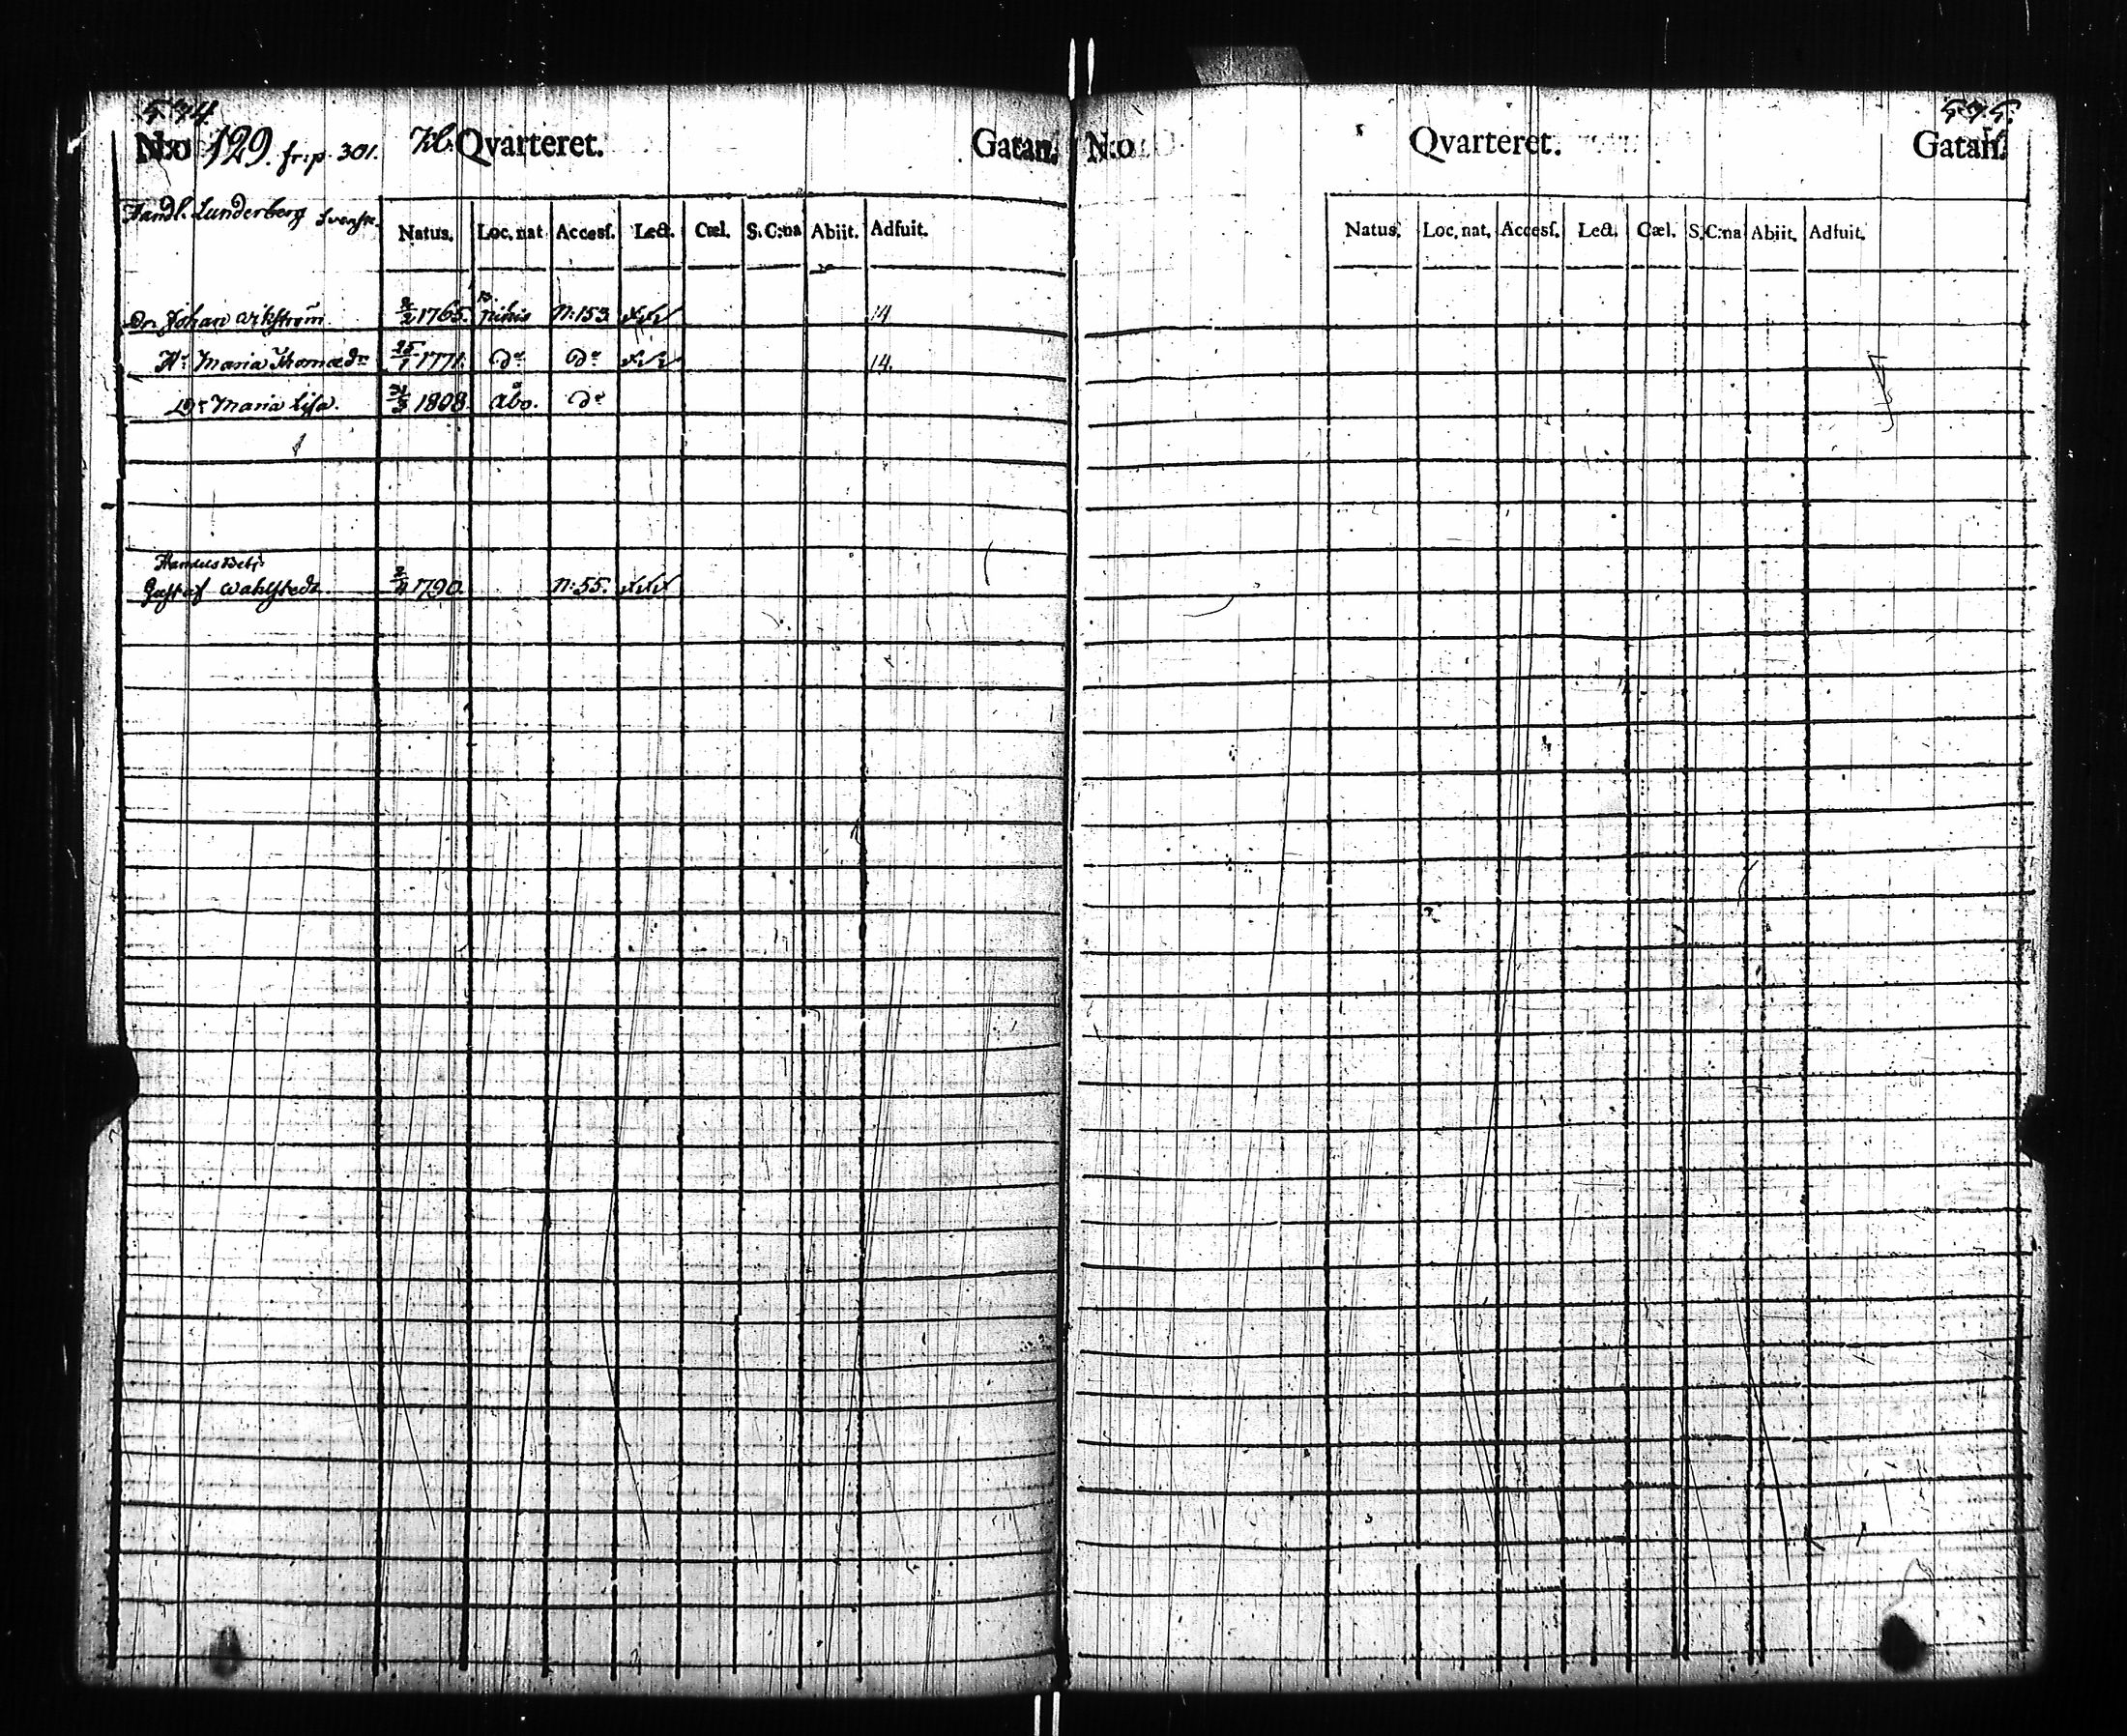 574.
N:o 129. fr: p. 301. Kl. Qvarteret. Gatan.
Handl. Lunderberg Svensk.
Natus. Loc. nat Accesſ. Lect. Cæl. S. C:na Abiit. Adfuit.
Dr. Johan Wikström 1765. Pikis N:153 14
Hu Maria Thomædr 1771. do do 14.
Dr Maria Lisa. 1808. Åbo. do
Handels Betj.
Gustaf Wahlstedt. 1790. N:55.
575.
N:o Qvarteret. Gatan.
Natus. Loc. nat. Accesſ. Lect. Cæl. S. C:na Abiit. Adfuit.